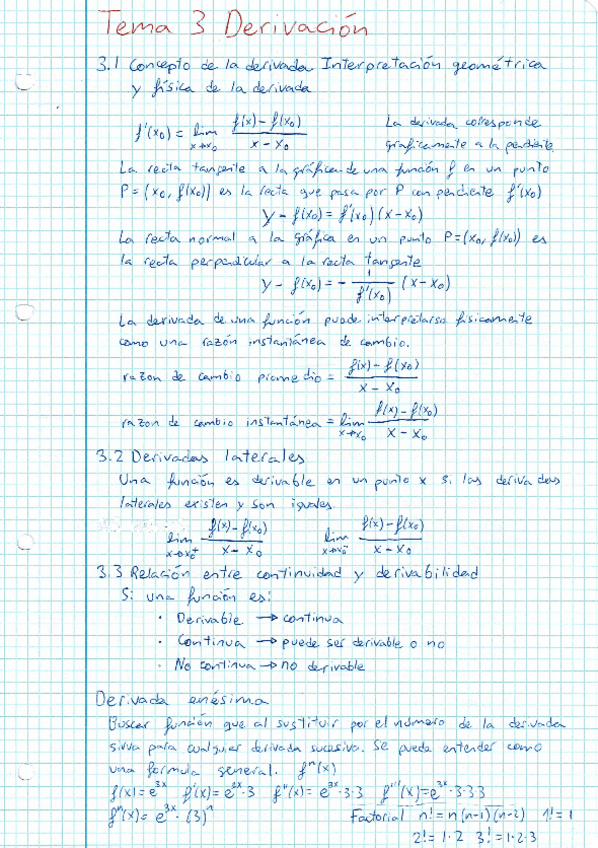 Tema 3 Derivación
3.1 Concepto de la derivada Interpretación geométrica
y física de la derivada
f'(x₀) = lim x→x₀ (f(x) - f(x₀)) / (x - x₀)
La derivada corresponde
graficamente a la pendiente
La recta tangente a la gráfica de una función f en un punto
P = (x₀, f(x₀)) es la recta que pasa por P con pendiente f'(x₀)
y - f(x₀) = f'(x₀) (x - x₀)
La recta normal a la gráfica en un punto P = (x₀, f(x₀)) es
la recta perpendicular a la recta tangente
y - f(x₀) = - 1 / f'(x₀) (x - x₀)
La derivada de una función puede interpretarse fisicamente
como una razón instantánea de cambio.
razon de cambio promedio = (f(x) - f(x₀)) / (x - x₀)
razon de cambio instantánea = lim x→x₀ (f(x) - f(x₀)) / (x - x₀)
3.2 Derivadas laterales
Una función es derivable en un punto x si las derivadas
laterales existen y son iguales.
lim x→x₀⁺ (f(x) - f(x₀)) / (x - x₀) lim x→x₀⁻ (f(x) - f(x₀)) / (x - x₀)
3.3 Relación entre continuidad y derivabilidad
Si una función es:
· Derivable → continua
· Continua → puede ser derivable o no
· No continua → no derivable
Derivada enésima
Buscar función que al sustituir por el número de la derivada
sirva para cualquier derivada sucesiva. Se puede entender como
una formula general. fⁿ(x)
f(x) = e³ˣ f'(x) = e³ˣ·3 f''(x) = e³ˣ·3·3 f'''(x) = e³ˣ·3·3·3
fⁿ(x) = e³ˣ·(3)ⁿ
Factorial n! = n(n-1)(n-2) 1! = 1
2! = 1·2 3! = 1·2·3